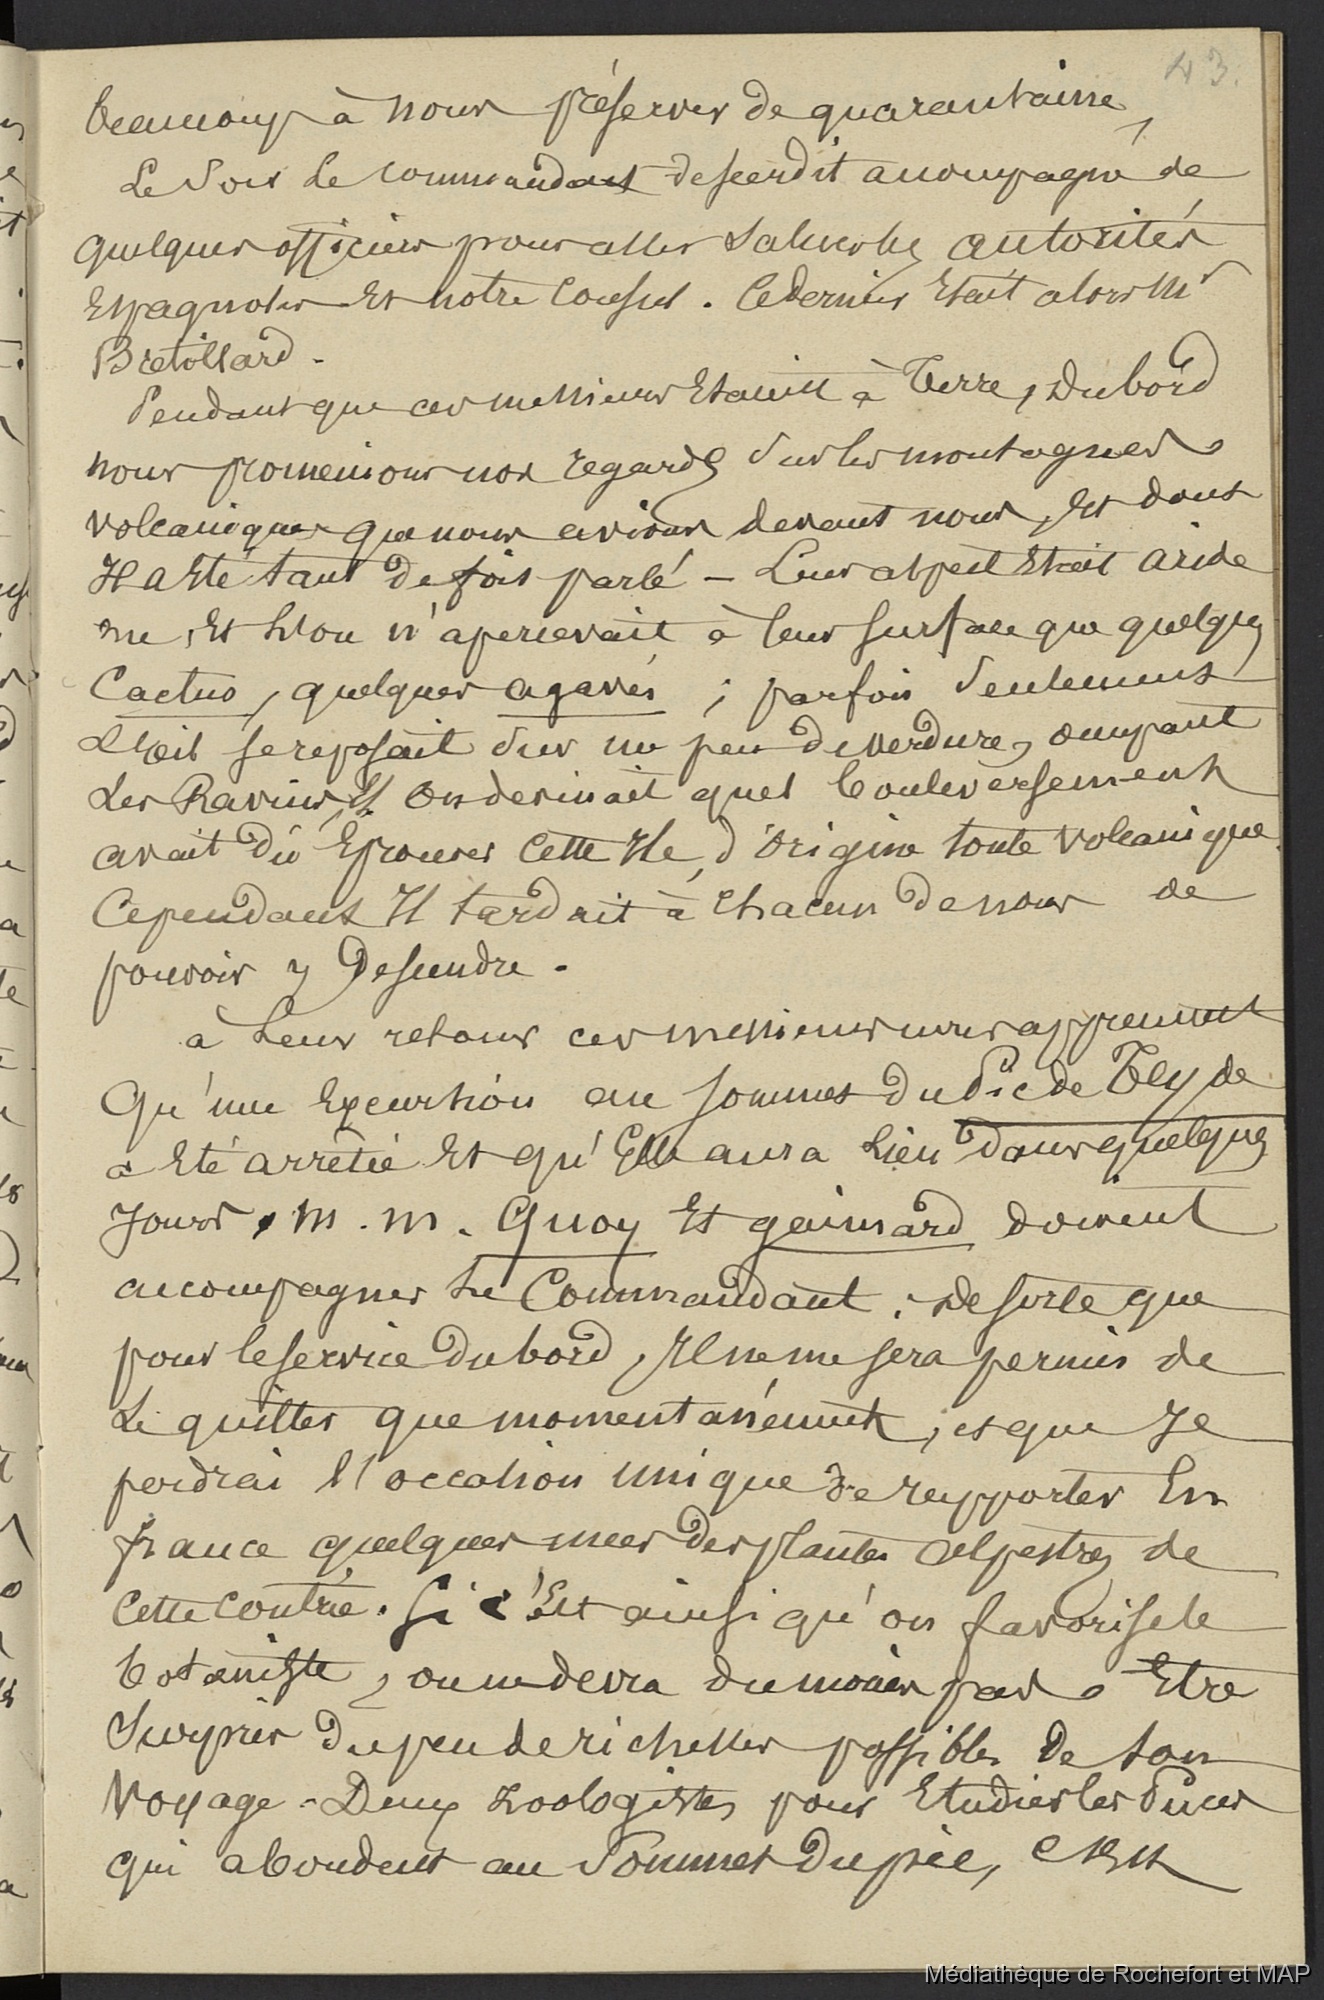 43.
beaucoup à nous préserver de quarantaine,
Le Soir le commandant descendit accompagné de
quelques officiers pour aller Saluer les autorités
Espagnoles Et notre Consul. Ce dernier Etait alors Mr
Bretillard.
Pendant que ces messieurs Etaient à Terre, Du bord
nous promenions nos regards Sur les montagnes
volcaniques que nous avions devant nous, Et dont
Il a Eté tant de fois parlé – Leur aspect Etait aride
nu, Et L'on n'apercevait à leur surface que quelques
Cactus, quelques agavés ; parfois Seulement
L'œil se reposait Sur un peu de verdure, occupant
Les Ravins, Et On devinait quel bouleversement
avait dû Eprouver Cette Ile, d'Origine toute Volcanique.
Cependant Il tardait à Chacun de nous de
pouvoir y Descendre.
à Leur retour ces messieurs nous apprennent
Qu'une Excursion au Sommet du Pic de Teyde
a Eté arrêtée Et qu'Elle aura Lieu dans quelques
Jours, M. M. Quoy Et gaimard doivent
accompagner Le Commandant ; De sorte que
pour le service du bord, Il ne me sera permis de
Le quitter que momentanément, et que Je
perdrai L'occasion unique de rapporter En
france quelques unes des plantes alpestres de
Cette Contrée. Si c'Est ainsi qu'on favorise le
botaniste, on ne devra du moins pas Etre
Surpris du peu de richesses possibles de son
Voyage. Deux zoologistes pour Etudier les Puces
qui abondent au Sommet du pic, C'Est
Médiathèque de Rochefort et MAP